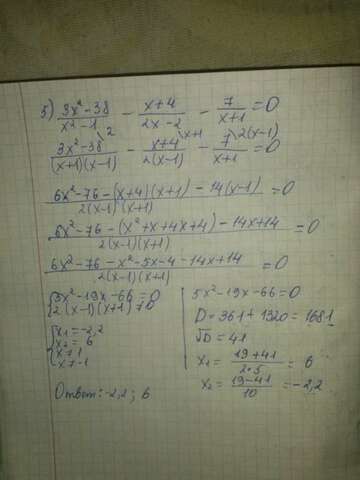 5) (3x² - 38)/(x² - 1) - (x+4)/(2x-2) - 7/(x+1) = 0
(3x² - 38)/((x+1)(x-1)) \2 - (x+4)/(2(x-1)) \x+1 - 7/(x+1) \2(x-1) = 0
(6x² - 76 - (x+4)(x+1) - 14(x-1))/(2(x-1)(x+1)) = 0
(6x² - 76 - (x² + x + 4x + 4) - 14x + 14)/(2(x-1)(x+1)) = 0
(6x² - 76 - x² - 5x - 4 - 14x + 14)/(2(x-1)(x+1)) = 0
{ 5x² - 19x - 66 = 0
2(x-1)(x+1) ≠ 0
{ x₁ = -2,2
x₂ = 6
x ≠ 1
x ≠ -1
Ответ: -2,2; 6
5x² - 19x - 66 = 0
D = 361 + 1320 = 1681
√D = 41
x₁ = (19+41)/(2·5) = 6
x₂ = (19-41)/10 = -2,2